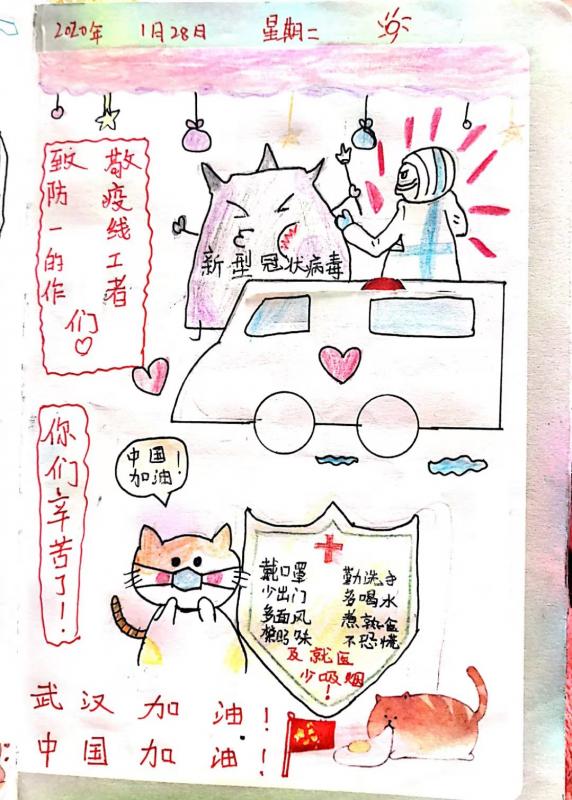 2020年 1月28日 星期二
致敬
防疫
一线
的工
作者
们
新型冠状病毒
你们辛苦了!
中国
加油!
戴口罩 勤洗手
少出门 多喝水
煮熟食
不恐慌
及就医
少吸烟!
武汉加油!
中国加油!